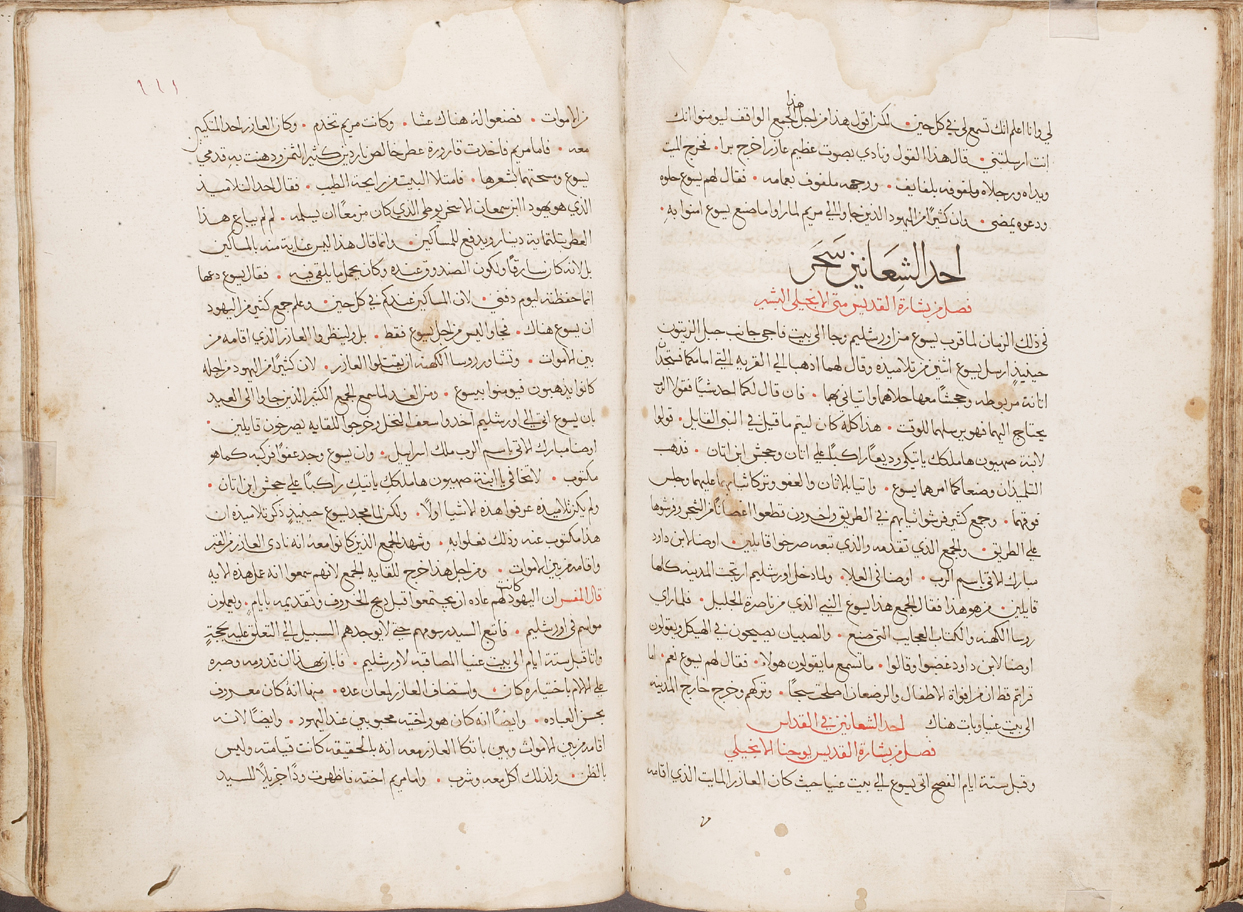 لي وانا اعلم انك تسمع لي في كل حين • لكن اقول هذا من اجل هذا الجمع الواقف ليومنوا انك
انت ارسلتني • قال هذا القول ونادي بصوت عظيم عازر اخرج برا • فخرج الميت
ويداه ورجلاه ملفوفه بلفايف • ووجهه ملفوف بعمامه • فقال لهم يسوع حلوه
ودعوه يمضي • وان كثيرًا من اليهود الذين جاوا الي مريم لما راوا ما صنع يسوع امنوا به •
احد الشعانين سَحَر
فصل من بشارة القديس متى الانجيلي البشير
في ذلك الزمان لما قرب يسوع من اورشليم وجا الي بيت فاجي جانب جبل الزيتون
حينيدٍ ارسل يسوع اثنين من تلاميذه وقال لهما اذهبا الي القريه التي امامكما فستجدا
اتانة مربوطه وجحشًا معها حلاهما واتياني بهما • فان قال لكما احد شيًا فقولا الرب
يحتاج اليهما فهو يرسلهما للوقت • هذا كله كان ليتم ما قيل في النبي القايل • قولوا
لابنة صهيون ها ملكك ياتيكي وديعًا راكبًا علي اتان وجحش ابن اتان • فذهب
التلميذان وصنعا كما امرهما يسوع • واتيا بالاتان والعفو وتركا ثيابهما عليهما وجلس
فوقهما • وجمع كثير فرشوا ثيابهم في الطريق واخرون قطعوا اغصانًا من الشجر وفرشوها
علي الطريق • والجمع الذي تقدمه والذي تبعه صرخوا قايلين • اوصنا لابن داود
مبارك الاتي باسم الرب • اوصنا في العلا • ولما دخل اورشليم ارتجت المدينه كلها
قايلين • من هو هذا فقال الجمع هذا يسوع النبي الذي من ناصرة الجليل • فلما راي
روسا الكهنه والكتاب العجايب التي صنع • والصبيان يصيحون في الهيكل ويقولون
اوصنا لابن داود غضبوا وقالوا • ما تسمع ما يقولون هولاء • فقال لهم يسوع نعم • اما
قراتم قط ان من افواة الاطفال والرضعان اصلحت سبحًا • وتركهم وخرج خارج المدينه
الي بيت عنيا وبات هناك احد الشعانين في القداس
فصل من بشارة القديس يوحنا الانجيلي
وقبل ستة ايام الفصح اتي يسوع الي بيت عنيا حيث كان العازر المايت الذي اقامه
١١١
من الاموات • فصنعوا له هناك عشا • وكانت مريم تخدم • وكان العازر احد المتكيين
معه • فاما مريم فاخدت قارورة عطر خالص ناردين كثير الثمن ودهنت به قدمي
يسوع ومسحتهما بشعرها • فامتلا البيت من رايحة الطيب • فقال احد التلاميذ
الذي هو يهودا ابن سمعان الاسخريوطي الذي كان مزمعًا ان يسلمه • لم لم يباع هذا
العطر بثلثماية دينار ويدفع للمساكين • وانما قال هذا ليس عناية منه بالمساكين
بل لانه كان سارقًا ولكون الصندوق عنده وكان يحمل ما يلقي فيه • فقال يسوع دعها
انما حفظته ليوم دفني • لان المساكين عندكم في كل حين • وعلم جمع كثير من اليهود
ان يسوع هناك • فجاوا ليس من اجل يسوع فقط • بل ولينظروا العازر الذي اقامه من
بين الاموات • وتشاور روسا الكهنه ان يقتلوا العازر • لان كثيرًا من اليهود من اجله
كانوا يذهبون فيومنوا بيسوع • ومن الغد لما سمع الجمع الكثير الذين جاوا الي العيد
بان يسوع اتي الي اورشليم اخدوا سعف النخل وخرجوا للقايه يصرخون قايلين •
اوصنا مبارك الاتي باسم الرب ملك اسراييل • وان يسوع وجد عفوًا فركبه كما هو
مكتوب • لا تخافي يا ابنة صهيون ها ملككِ ياتيكِ راكبًا علي جحش ابن اتان •
ولم يكن تلاميذه عرفوا هذه الاشيا اولًا • ولكن لما مجد يسوع حينيدٍ ذكر تلاميذه ان
هذا مكتوب عنه وذلك فعلوا به • وشهد الجمع الذين كانوا معه انه نادي العازر من القبر
واقامه من بين الاموات • ومن اجل هذا خرج للقايه الجمع لانهم سمعوا انه عمل هذه الايه
قال المفسر ان اليهود كانت لهم عاده ان يجتمعوا قبل دبح الخروف وتقديمه بايام • ويعملون
مواسم في اورشليم • فاتبع السيد رسومهم حتي لا يوجدهم السبيل الي التعلق عليه بحجةٍ
واتا قبل ستة ايام الي بيت عنيا المصاقبه لاورشليم • فابان بهذا ان قدومه وصبره
علي الالام باختياره كان • واستضاف العازر لمعان عده • منها انه كان معروف
بحسن العباده • وايضًا انه كان هو واخته محبوبين عند اليهود • وايضًا لانه
اقامه من بين الاموات وبين باتكا العازر معه انه بالحقيقه كانت قيامته وليس
بالظن • ولذلك اكل معه وشرب • واما مريم اخته فاظهرت ودًا جزيلًا للسيد